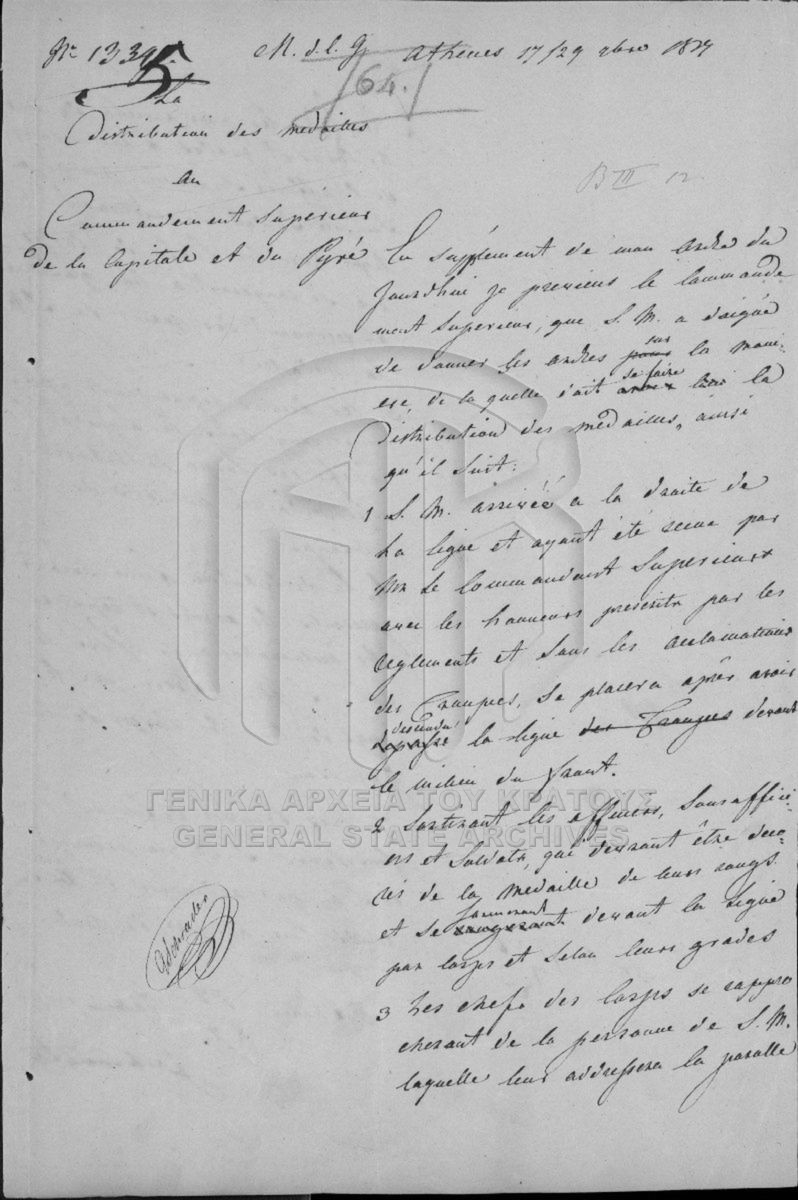 No 13395.
M. d. l. G
Athenes 17/29 9bre 1834
/64./
La
Distribution des medailles
B III 12
au
Commandement Superieur
de la Capitale et du Pyré
En supplément de mon ordre du
Jourdhui je previens le Commande
ment Superieur, que S. M. a daigné
de donner les ordres pour sur la mani
ere, de la quelle doit se faire la
Distribution des medailles, ainsi
qu'il suit:
1 S. M. arrivée a la droite de
la ligne et ayant été recue par
Mr le Commandant Superieur
avec les honneurs prescrits par les
reglements et sous les acclamations
des Trouppes, se placera après avoir
descendu la ligne des Trouppes devant
le milieu du front.
2 Sortiront les officiers, Sousoffici
ers et Soldats, qui devront être deco
rés de la Medaille de leurs rangs
et se formeront devant la ligne
par Corps et selon leurs grades
3 Les chefs des Corps se rappro
cheront de la personne de S. M.
laquelle leur addressera la parolle
Schrader
ΓΕΝΙΚΑ ΑΡΧΕΙΑ ΤΟΥ ΚΡΑΤΟΥΣ
GENERAL STATE ARCHIVES